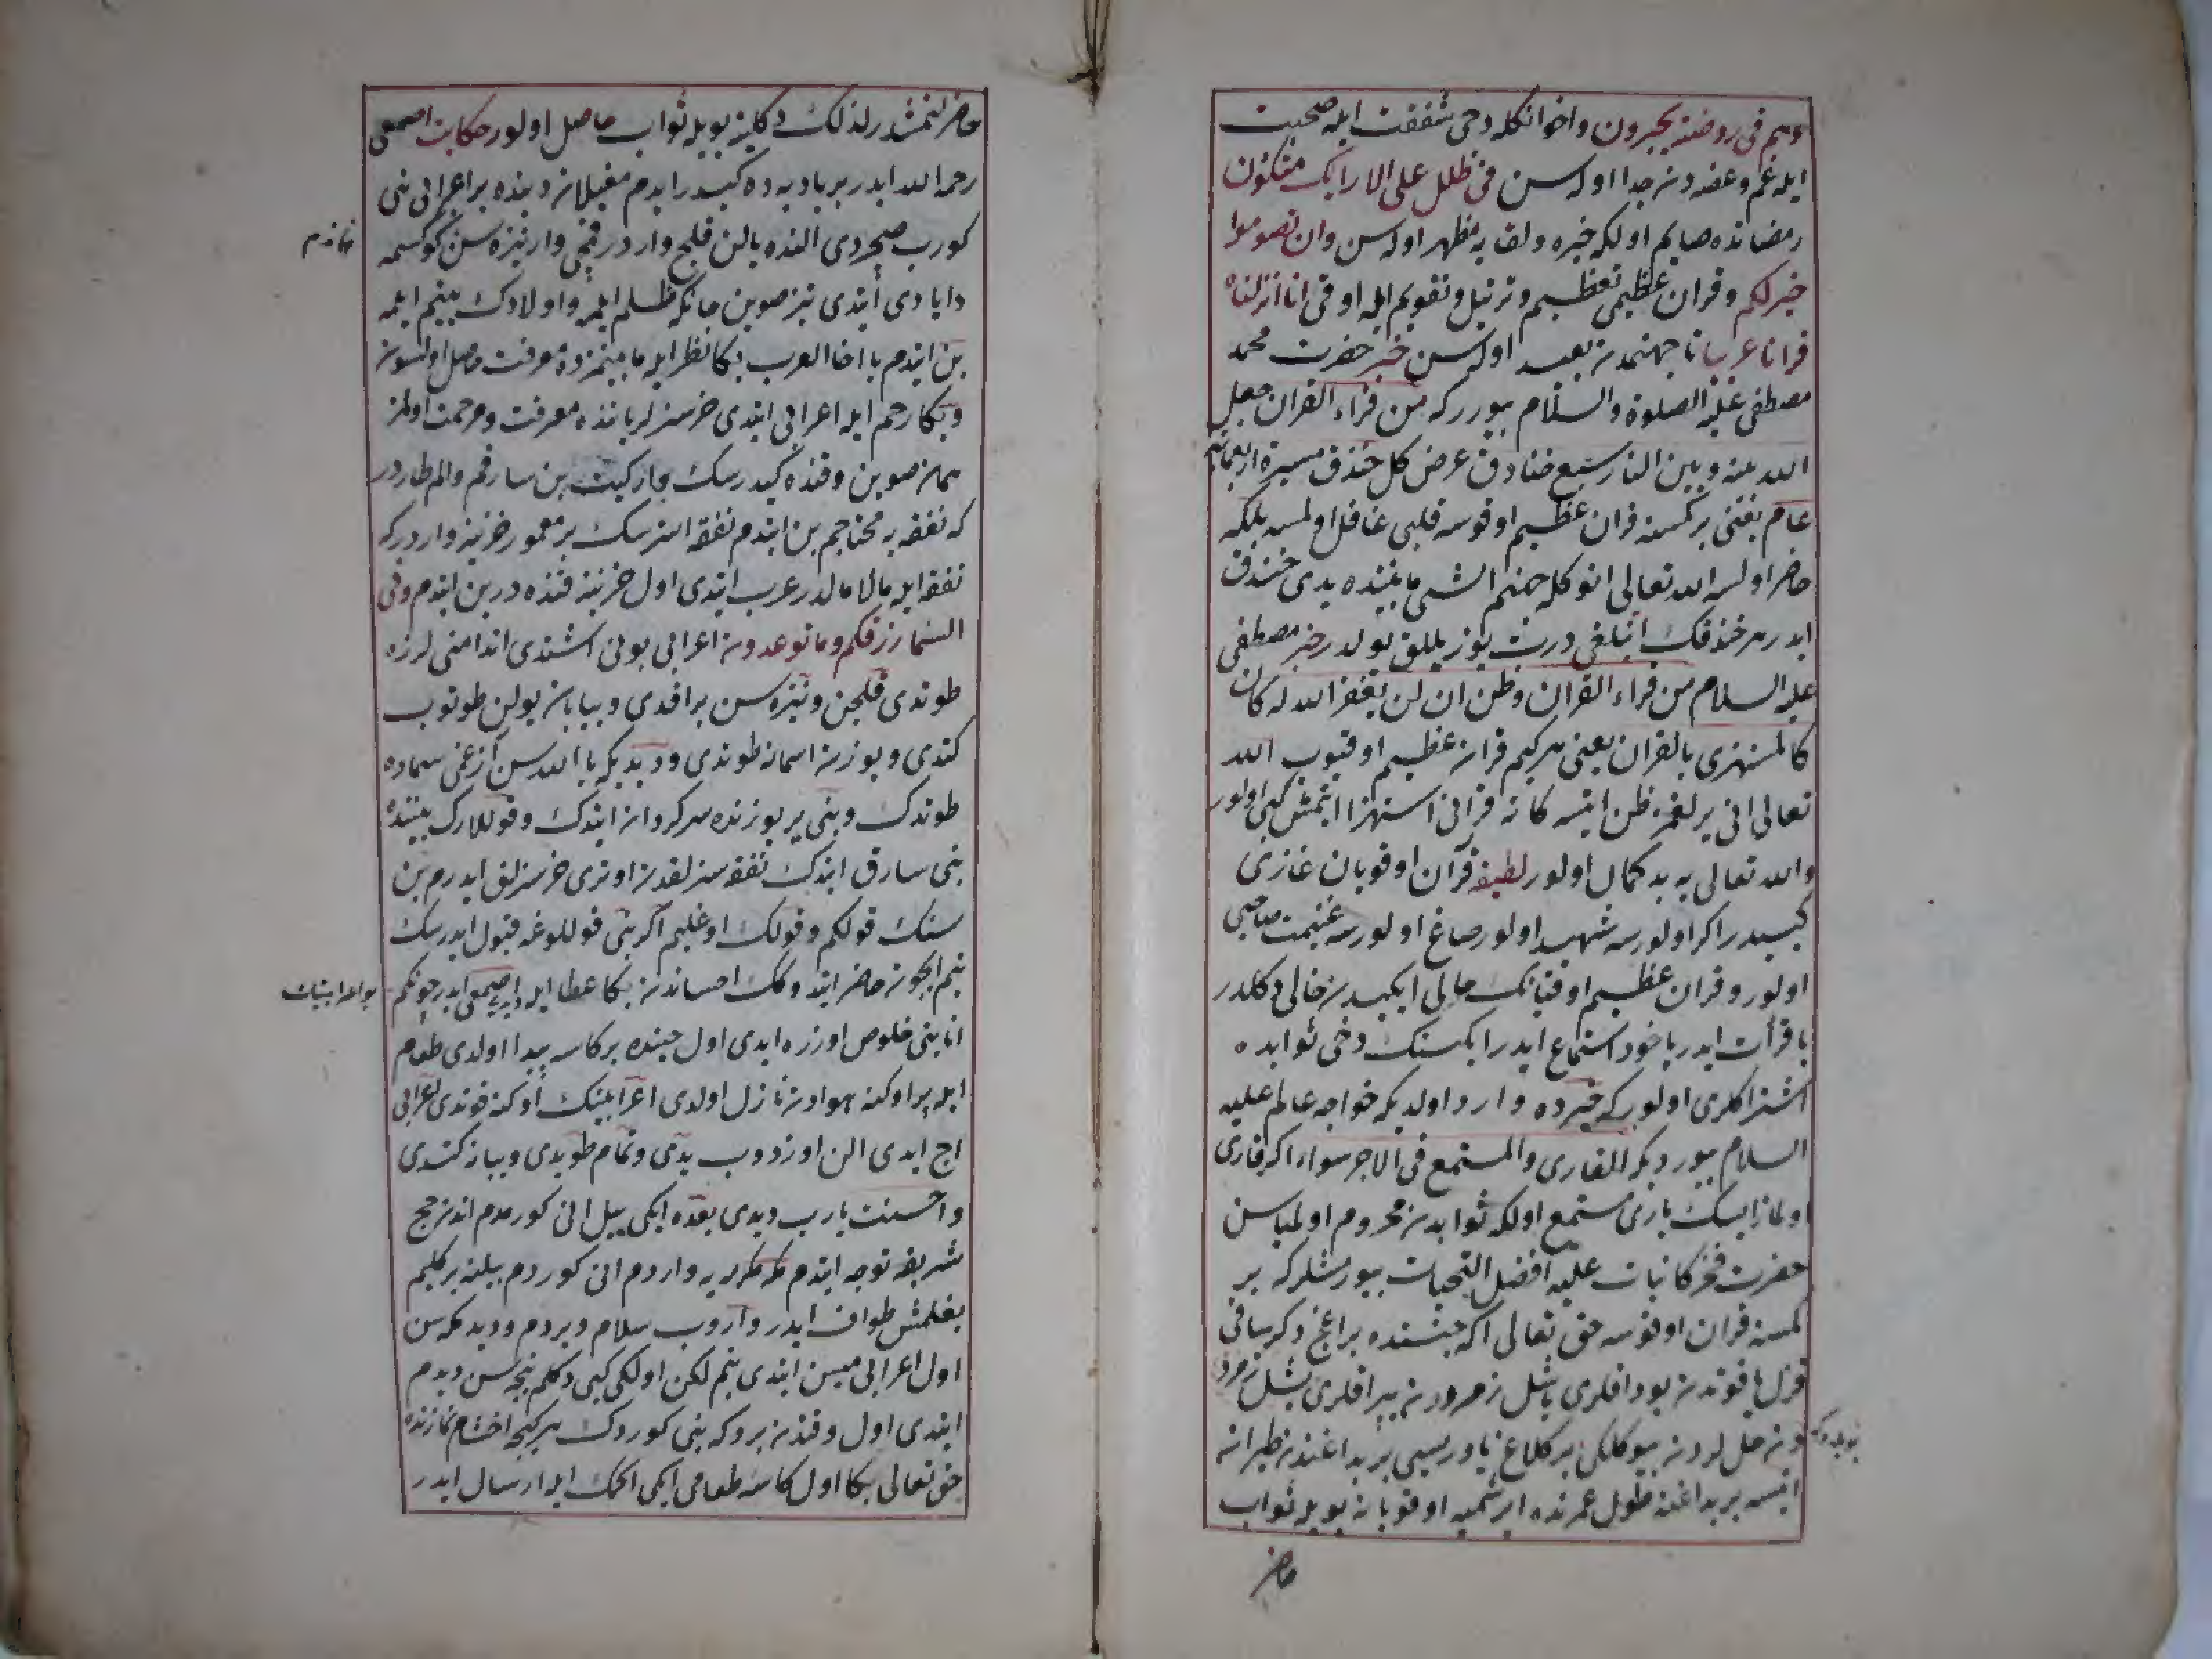 وهم فی روضة یحبرون واخوانکله دخی شفقت ایله صحبت
ایله غم وغصه دن جدا اوله سن فی ظلل علی الارایک متکئون
رمضانده صایم اولکه خیره ولقایه مظهر اوله سن وان تصوموا
خیر لکم وقران عظیمی تعظیم وترتیل وتقویم ایله اوقی انا انزلناه
قرانا عربیا تا جهنمدن بعید اوله سن خبر حضرت محمد
مصطفی علیه الصلوة والسلام بیوررکه من قراء القران جعل
الله بینه وبین النار سبع خنادق عرض کل خندق مسیرة اربعمائه
عام یعنی بر کمسنه قران عظیم اوقوسه قلبی غافل اولمسه بلکه
حاضر اولسه الله تعالی انوکله جهنم اتشی مابیننده یدی خندق
ایدر هر خندقک اینلغی درت یوز ییللق یولدر خبر مصطفی
علیه السلام من قراء القران وظن ان لن یغفر الله له کان
کالمستهزی بالقران یعنی هر کیم قران عظیم اوقیوب الله
تعالی انی یرلغمز ظن ایتسه کانه قرانی استهزا ایتمش کبی اولور
والله تعالی یه بد کمال اولور لطیفه قرآن اوقویان غازی
کبیدر اکر اولورسه شهید اولور صاغ اولورسه غنیمت صاحبی
اولور وقران عظیم اوقیانک حالی ایکیدن خالی دکلدر
یا قرأت ایدر یاخود استماع ایدر ایکسنک دخی ثوابده
اشتراکلری اولورکه خبرده وارد اولدیکه خواجه عالم علیه
السلام بیوردیکه القاری والمستمع فی الاجر سواء اکر قاری
اولمازایسک باری مستمع اولکه ثوابدن محروم اولمیاسن
حضرت فخر کاینات علیه افضل التحیات بیورمشلرکه بر
کمسنه قران اوقوسه حق تعالی اکه جنتده بر اغج دکر ساقی
قزل یاقوتدن بوداقلری یاشل زمرددن یپراقلری یشل زمرد
دن حللردن بیوکلکی بر کلاغ یاوریسی بر بداغندن طیرانه
ایتسه بر بداغنه طول عمرنده ایرشمیه اوقویانه بویله ثواب
بویله که
حاضر
حاضر ایتمشدر لذلک دکلینه بویله ثواب حاصل اولور حکایت اصمعی
رحمه الله ایدر بر بادیه ده کیدر ایدم مغیلان دیبنده بر اعرابی بنی
کورب صچردی النده یالن قلیج واردر قمچی وار نیزه سن کوکسمه
دایادی ایتدی تیز صوین جانکه ظلم ایلمه واولادک یتیم ایلمه
بن ایتدم یا اخا العرب بکا نظر ایله مابینمزده معرفت حاصل اولسون
وبکا رحم ایله اعرابی ایتدی خرسزلر یاننده معرفت ومرحمت اولمز
همان صوین وقنده کیدرسک بجار کیت بن سارقم والم طاردر
که نفقه یه محتاجم بن ایتدم نفقه استرسک بر معمور خزینه واردرکه
نفقه ایله مالامالدر عرب ایتدی اول خزینه قنده در بن ایتدم وفی
السماء رزقکم وما توعدون اعرابی بونی اشتدی اندامنی لرزه
طوتدی قلجن ونیزه سن براقدی وبیابان یولن طوتوب
کتدی ویوزن اسمانه طوتدی ودیدیکه یا الله سن ازغی سماده
طوتدک وبنی یر یوزنده سرکردان ایتدک وقوللارک بیننده
بنی سارق ایتدک نفقه سزلقدن اوتری خرسزلق ایدرم بن
سنک قولکم وقولک اوغلیم اکر بنی قوللوغه قبول ایدرسک
بنم ایچون حاضر ایتدوکک احساندن بکا عطا ایله دیدی اصمعی ایدر چونکم
انابتی خلوص اوزره ایدی اول حینده بر کاسه پیدا اولدی طعام
ایله پر اوکنه هوادن نازل اولدی اعرابینک اوکنه قوندی اعرابی
اج ایدی الن اوزدوب یدی وتمام طویدی وبیابان کتدی
واحسنت یارب دیدی بعده ایکی ییل انی کورمدم اندن حج
شریفه توجه ایتدم مکه مکرمه یه واردم انی کوردم بیلنه بر کلیم
بغلمش طواف ایدر واروب سلام ویردم ودیدمکه سن
اول اعرابی میسن ایتدی بنم لکن اولکی کبی دکلم نیجه سن دیدم
ایتدی اول وقتدن بروکه بنی کوردک هر کیجه اخشام نمازنده
حق تعالی بکا اول کاسه طعامی ایکی اکمک ایله ارسال ایدر
بو اعرابینک